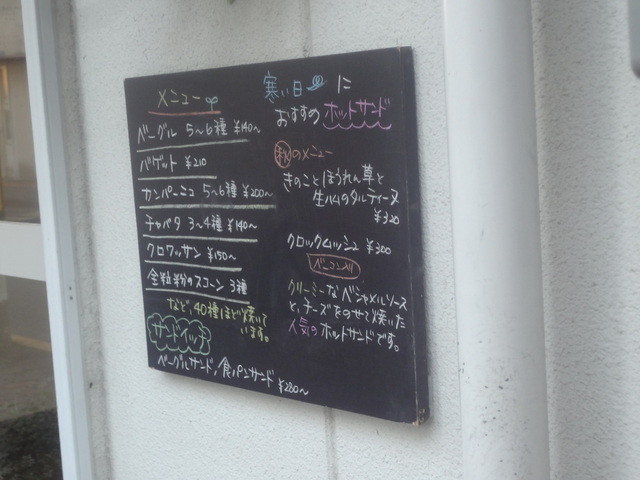 メニュー
ベーグル 5〜6種 ¥140〜
バゲット ¥210
カンパーニュ 5〜6種 ¥200〜
チャバタ 3〜4種 ¥140〜
クロワッサン ¥150〜
全粒粉のスコーン 3種
など、40種ほど焼いて
います。
サンドイッチ
ベーグルサンド, 食パンサンド
¥280〜
寒い日に
おすすめの ホットサンド
秋のメニュー
きのことほうれん草と
生ハムのタルティーヌ
¥320
クロックムッシュ ¥300
ベーコン入り
クリーミーなベシャメルソース
と、チーズをのせて焼いた
人気のホットサンドです。